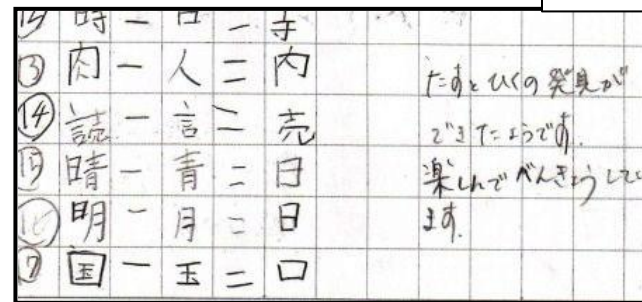 時 − 日 − 寺
⑬ 肉 − 人 = 内
⑭ 読 − 言 = 売
⑮ 晴 − 青 = 日
⑯ 明 − 月 = 日
⑰ 国 − 玉 = 口
たすとひくの発見が
できたようです.
楽しんでべんきょうしてい
ます.